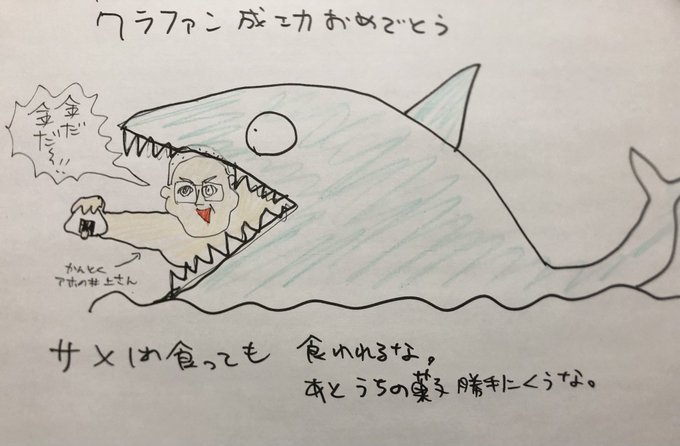 クラファン成功おめでとう
金だ
金だぞ!!
かんとく
アホの井上さん
サメは食っても 食われるな。
あとうちの菓子勝手にくうな。